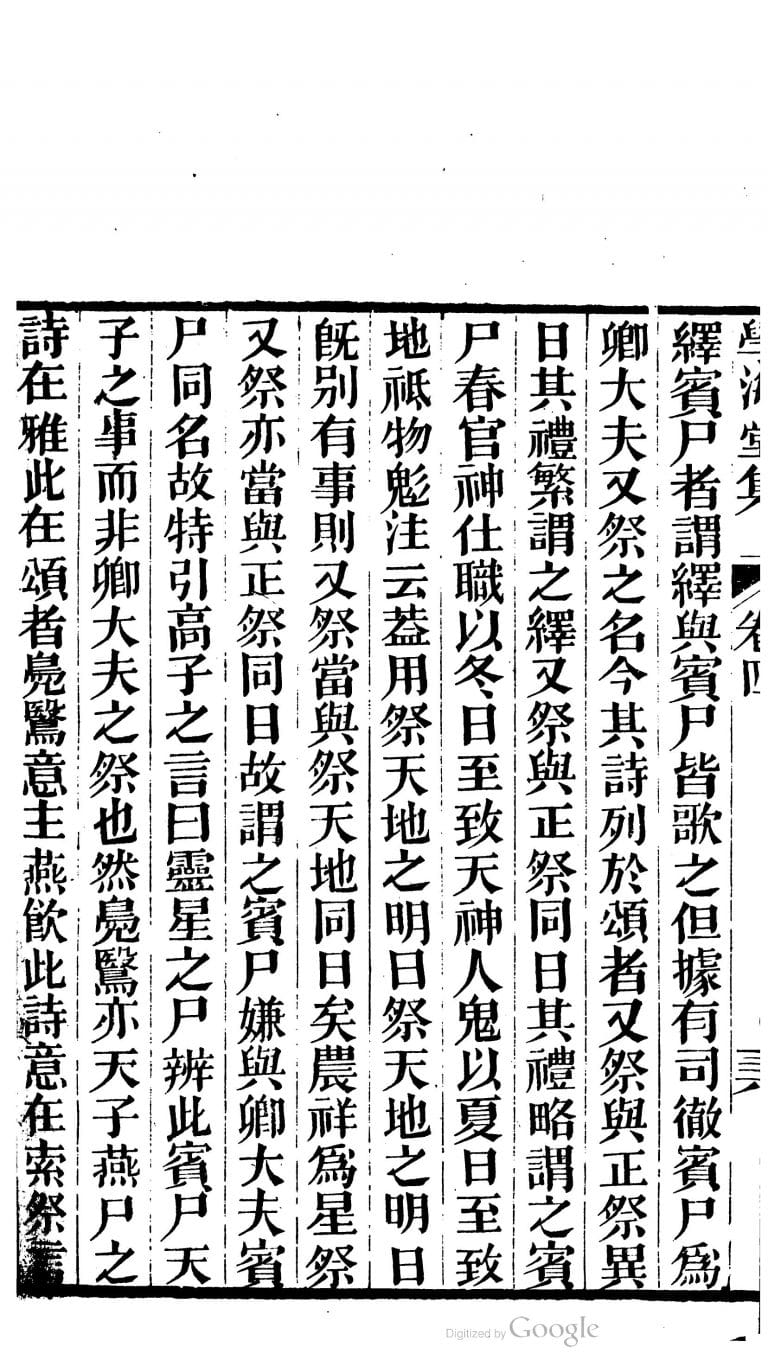 學海堂集 卷四
繹賓尸者謂繹與賓尸皆歌之但據有司徹賓尸爲
卿大夫又祭之名今其詩列於頌者又祭與正祭異
日其禮繁謂之繹又祭與正祭同日其禮略謂之賓
尸春官神仕職以冬日至致天神人鬼以夏日至致
地祗物鬽注云葢用祭天地之明日祭天地之明日
旣别有事則又祭當與祭天地同日矣農祥爲星祭
又祭亦當與正祭同日故謂之賓尸嫌與卿大夫賓
尸同名故特引高子之言曰靈星之尸辨此賓尸天
子之事而非卿大夫之祭也然鳧鷖亦天子燕尸之
詩在雅此在頌者鳧鷖意主燕飮此詩意在索祭
Digitized by Google